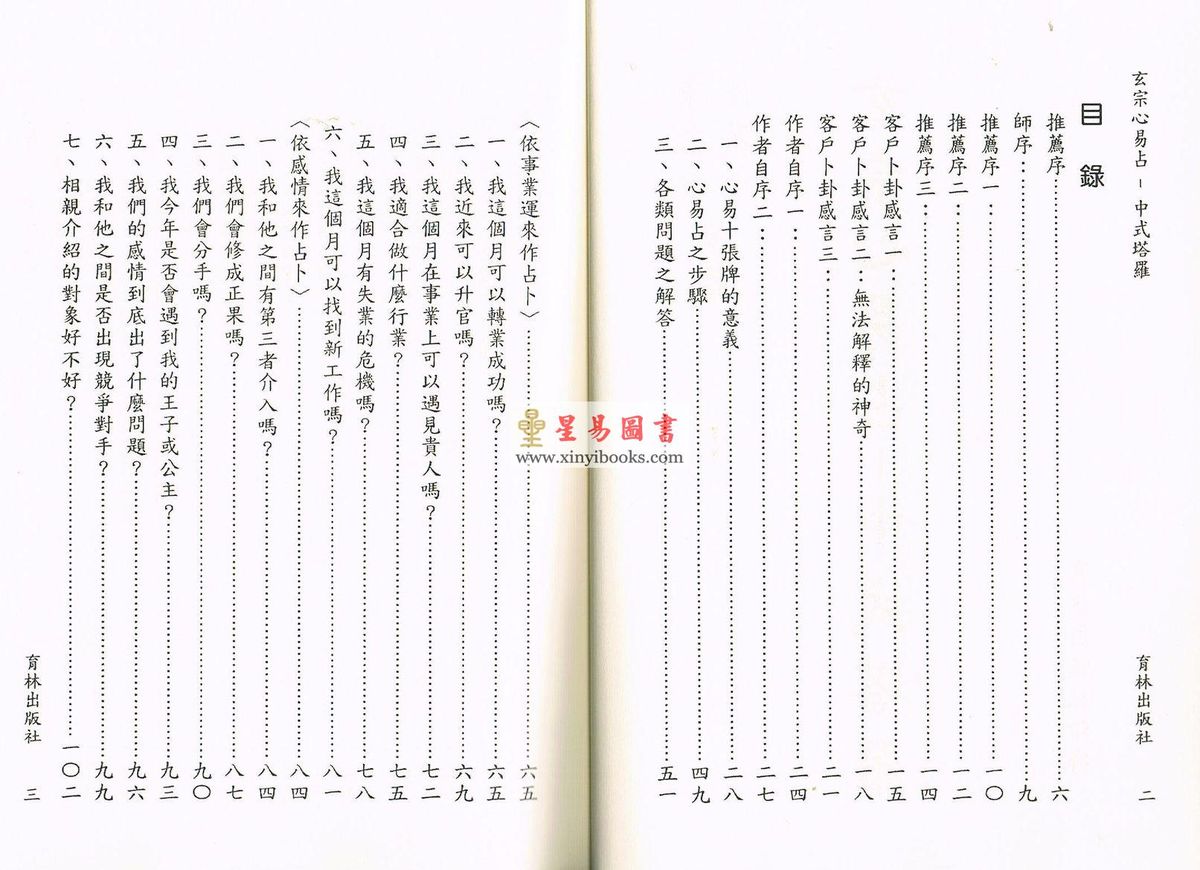 玄宗心易占－中式塔羅
育林出版社
二
目錄
推薦序……六
師序……九
推薦序一……一〇
推薦序二……一二
推薦序三……一四
客戶卜卦感言一……一五
客戶卜卦感言二－無法解釋的神奇……一八
客戶卜卦感言三……二一
作者自序一……二四
作者自序二……二七
一、心易十張牌的意義……二八
二、心易占之步驟……四九
三、各類問題之解答……五一
〈依事業運來作占卜〉……六五
一、我這個月可以轉業成功嗎？……六五
二、我近來可以升官嗎？……六九
三、我這個月在事業上可以遇見貴人嗎？……七二
四、我適合做什麼行業？……七五
五、我這個月有失業的危機嗎？……七八
六、我這個月可以找到新工作嗎？……八一
〈依感情來作占卜〉……八四
一、我和他之間有第三者介入嗎？……八四
二、我們會修成正果嗎？……八七
三、我們會分手嗎？……九〇
四、我今年是否會遇到我的王子或公主？……九三
五、我們的感情到底出了什麼問題？……九六
六、我和他之間是否出現競爭對手？……九九
七、相親介紹的對象好不好？……一〇二
育林出版社
三
星易圖書
www.xinyibooks.com